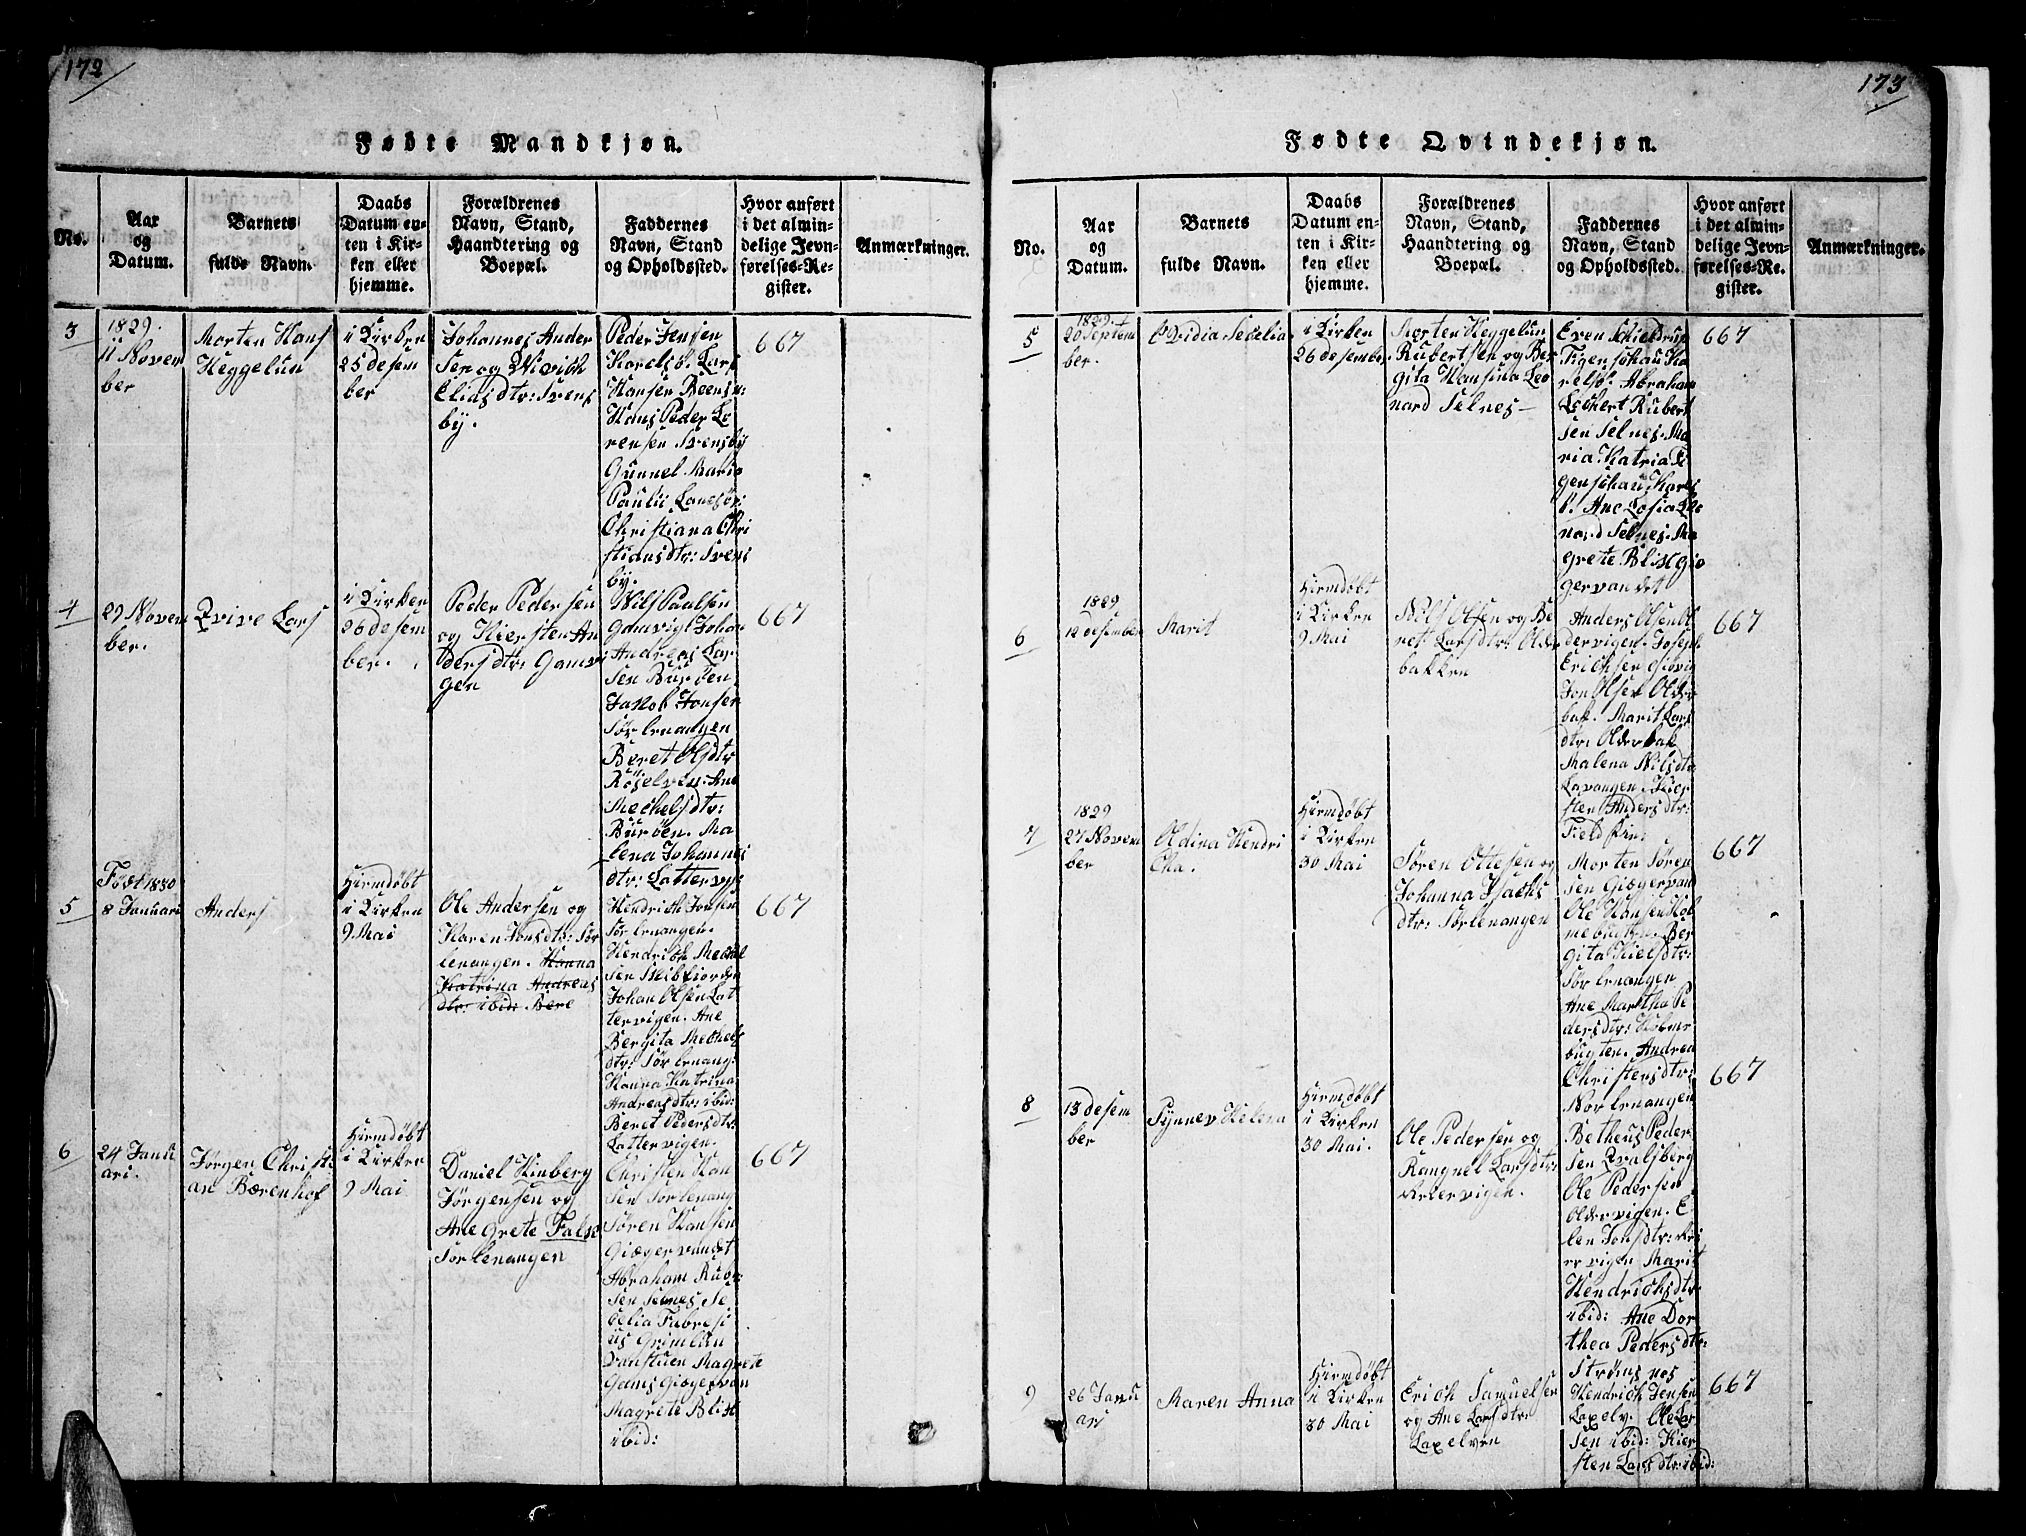 172
Fødte Mandkjøn.
No.
Aar
og
Datum.
Barnets
fulde Navn.
Daabs
Datum en-
ten i Kir-
ken eller
hjemme.
Forældrenes
Navn, Stand,
Haandtering og
Boepæl.
Faddernes
Navn, Stand
og Opholdssted.
Hvor anført
i det almin-
delige Jevn-
førelses-Re-
gister.
Anmærkninger.
3
1829.
11 Novem
ber
Morten Hans
Heggelun
i Kirken
25 desem
ber
Johannes Ander
Sen og Wivich
Eliasdtr: Svens
by.
Peder Jensen
Karelsö. Lars
Hansen Reensv:
Hans Peder Lo
rensen Svensby
Gunnel Maria
Paulii Lanesör:
Christiana Chri
stiansdtr: Svens
by.
667
4
29 Novem
ber.
Qvive Lars
i Kirken
26 desem
ber.
Peder Pedersen
og Kiersten An
dersdtr: Gamvi
gen
Nils Paulsen
Gamvigl Johan
Andreas Lar
sen Buröen
Jakob Jonsen
Sör lenangen
Beret Olsdtr
Röselven. Ane
Mechelsdtr:
Buröen. Ma
lena Johannes
dtr: Lattervg:
667
Föt 1830
5
8 Januari
Anders
Hiemdöbt
i Kirken
9 Mai
Ole Andersen og
Karen Jonsdtr: Sör
lenangen. Hanna
Katrina Andreas
dtr: ibid: Bere
Hendrich Jonsen
Sör lenangen.
Hendrich Mechel
sen Nibfiorden
Johan Olsen Lat
tervigen. Ane
Bergita Mechels
dtr: Sör lenang:
Hanna Katrina
Andreasdtr: ibid:
Beret Pedersdtr:
Lattervigen.
667
6
24 Janu
ari.
Jörgen Christi
an Bærenhof
Hiemdöbt
i Kirken
9 Mai
Daniel Kinberg
Jörgensen og
Ane Grete Falsen
Sör lenangen
Christen Han
sen Sör lenang
Sören Hansen
Giægervandet
Abraham Rub:
sen Selnes. Se
celia Fabrisi
us Grimlün
Vanstuen Magrete
Gams Giægervan
Magrete Blix
ibid:
667
173
Fødte Qvindekjøn.
No.
Aar
og
Datum.
Barnets
fulde Navn.
Daabs
Datum en-
ten i Kir-
ken eller
hjemme.
Forældrenes
Navn, Stand,
Haandtering og
Boepæl.
Faddernes
Navn, Stand
og Opholdssted.
Hvor anført
i det almin-
delige Jevn-
førelses-Re-
gister.
Anmærkninger.
5
1829
20 Septem
ber.
Ovidia Seselia
i Kirken
26 desember
Morten Heggelun
Rubertsen og Ber
gita Hansina Leo
nard Selnes
Even Schieldrup
Figenschau Ka
relsö. Abraham
Lochert Rubert
sen Selnes. Ma
ria Katria Fi
genschau Karls
ö. Ane Losia Leo
nard Selnes. Ma
grete Blix Giæ
gervandet
667
6
1829
12 desember
Marit
Hiemdöbt
i Kirken
9 Mai
Nils Olsen og Be
ret Larsdtr: Older
bakken
Anders Olsen Ol
dervigen. Joseph
Erichsen Giövig
Jon Olsen Older
bak. Marit Lars
dtr: Olderbak
Malena Nilsdtr:
Lavangen. Kier
sten Andersdtr:
667
7
1829
27 Novem
ber
Oldina Hendri
cha.
Hiemdöbt
i Kirken
30 Mai
Sören Ottesen og
Johanna Isachs
dtr: Sörlenangen
Morten Sören
sen Giægervand
Ole Hansen Hol
mebugten. Ber
gita Nielsdtr:
Sör lenangen
Ane Martha Pe
dersdtr: Holme
bugten. Andrea
Christensdtr:
Nor lenangen
667
8
13 desem
ber
Synnev Helena
Hiemdöbt
i Kirken
30 Mai.
Ole Pedersen og
Rangnel Larsdtr:
Betheus Peder
sen Qvalsberg
Ole Pedersen
Oldervigen. E
len Jonsdtr:
Marit
Hendrichsdtr
ibid: Ane Dor
thea Pedersdtr:
Strömsnes
667
9
26 Janu
ari
Maren Anna
Hiemdöbt
i Kirken
30 Mai
Erich Samuelsen
og Ane Larsdtr:
Laxelven
Hendrich Jensen
Laxelv. Ole Lar
sen ibid: Kier
sten Larsdtr: ibid:
667